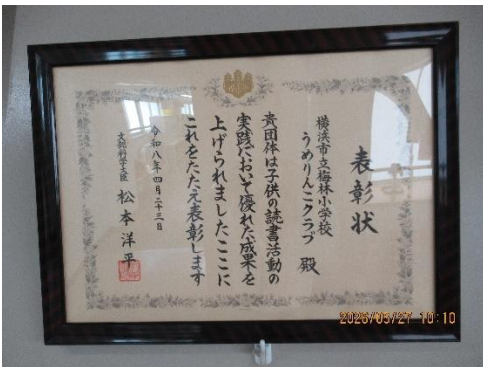 表彰状
横浜市立梅林小学校
うめりんこクラブ 殿
貴団体は子供の読書活動の
実践において優れた成果を
上げられましたここに
これをたたえ表彰します
令和八年四月二十三日
文部科学大臣 松本洋平
2026/05/27 10:10